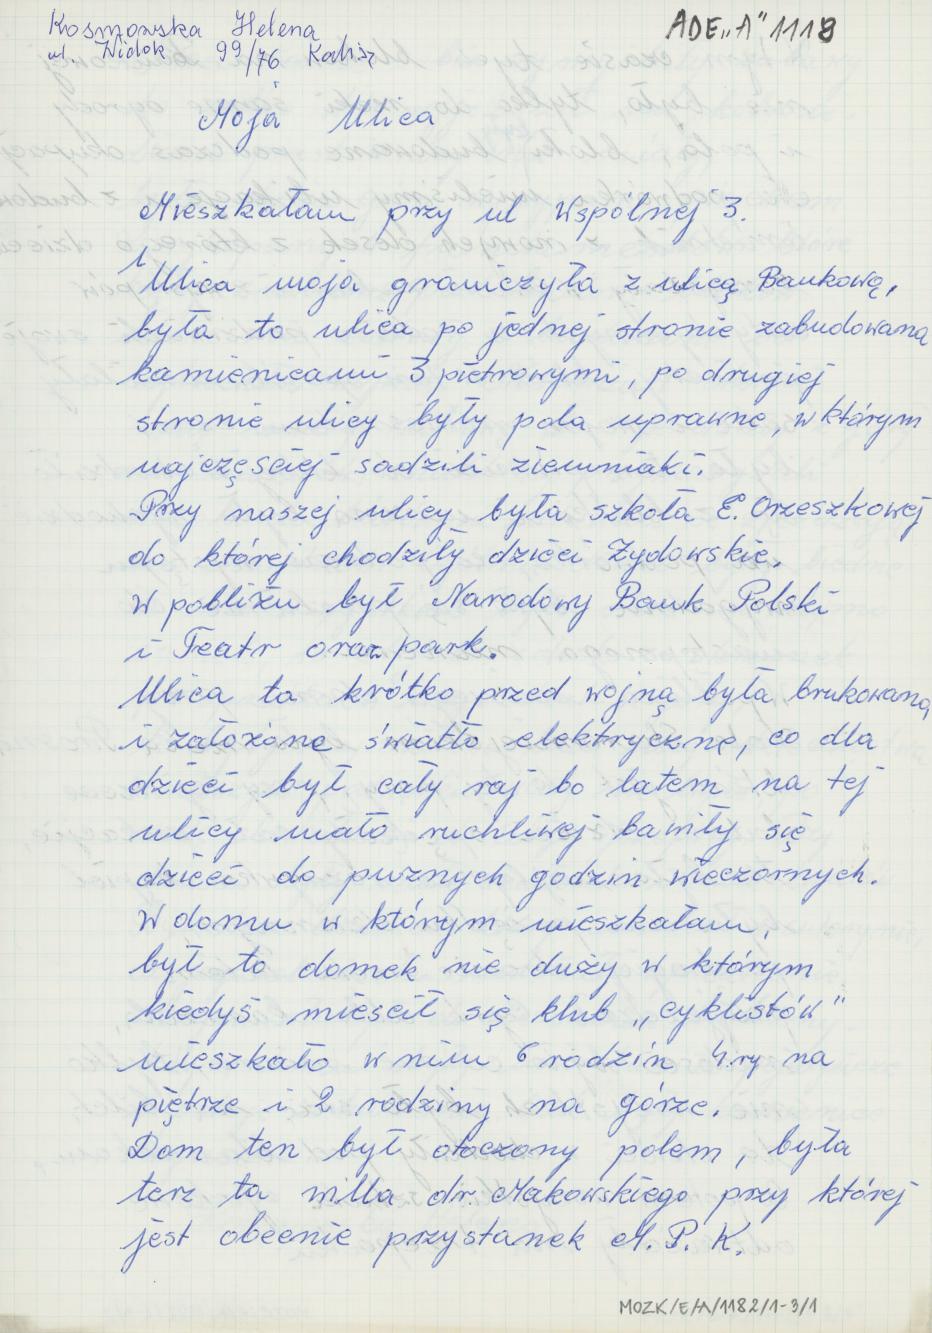 Kosmowska Helena
ul. Widok 99/76 Kalisz
ADE„A” 1118
Moja Ulica
Mieszkałam przy ul Wspólnej 3.
Ulica moja graniczyła z ulicą Bankową,
była to ulica po jednej stronie zabudowana
kamienicami 3 piętrowymi, po drugiej
stronie ulicy były pola uprawne, w którym
najczęsciej sadzili ziemniaki.
Przy naszej ulicy była szkoła E. Orzeszkowej
do której chodziły dzieci Żydowskie.
W pobliżu był Narodowy Bank Polski
i Teatr oraz park.
Ulica ta krótko przed wojną była brukowana,
i założone światło elektryczne, co dla
dzieci był cały raj bo latem na tej
ulicy mało ruchliwej bawiły się
dzieci do puznych godzin wieczornych.
W domu w którym mieszkałam,
był to domek nie duży w którym
kiedyś mieścił się klub „cyklistów”
mieszkało w nim 6 rodzin 4.ry na
piętrze i 2 rodziny na górze.
Dom ten był otoczony polem, była
terz ta willa dr. Makowskiego przy której
jest obecnie przystanek M.P.K.
MOZK/E/A/1182/1-3/1